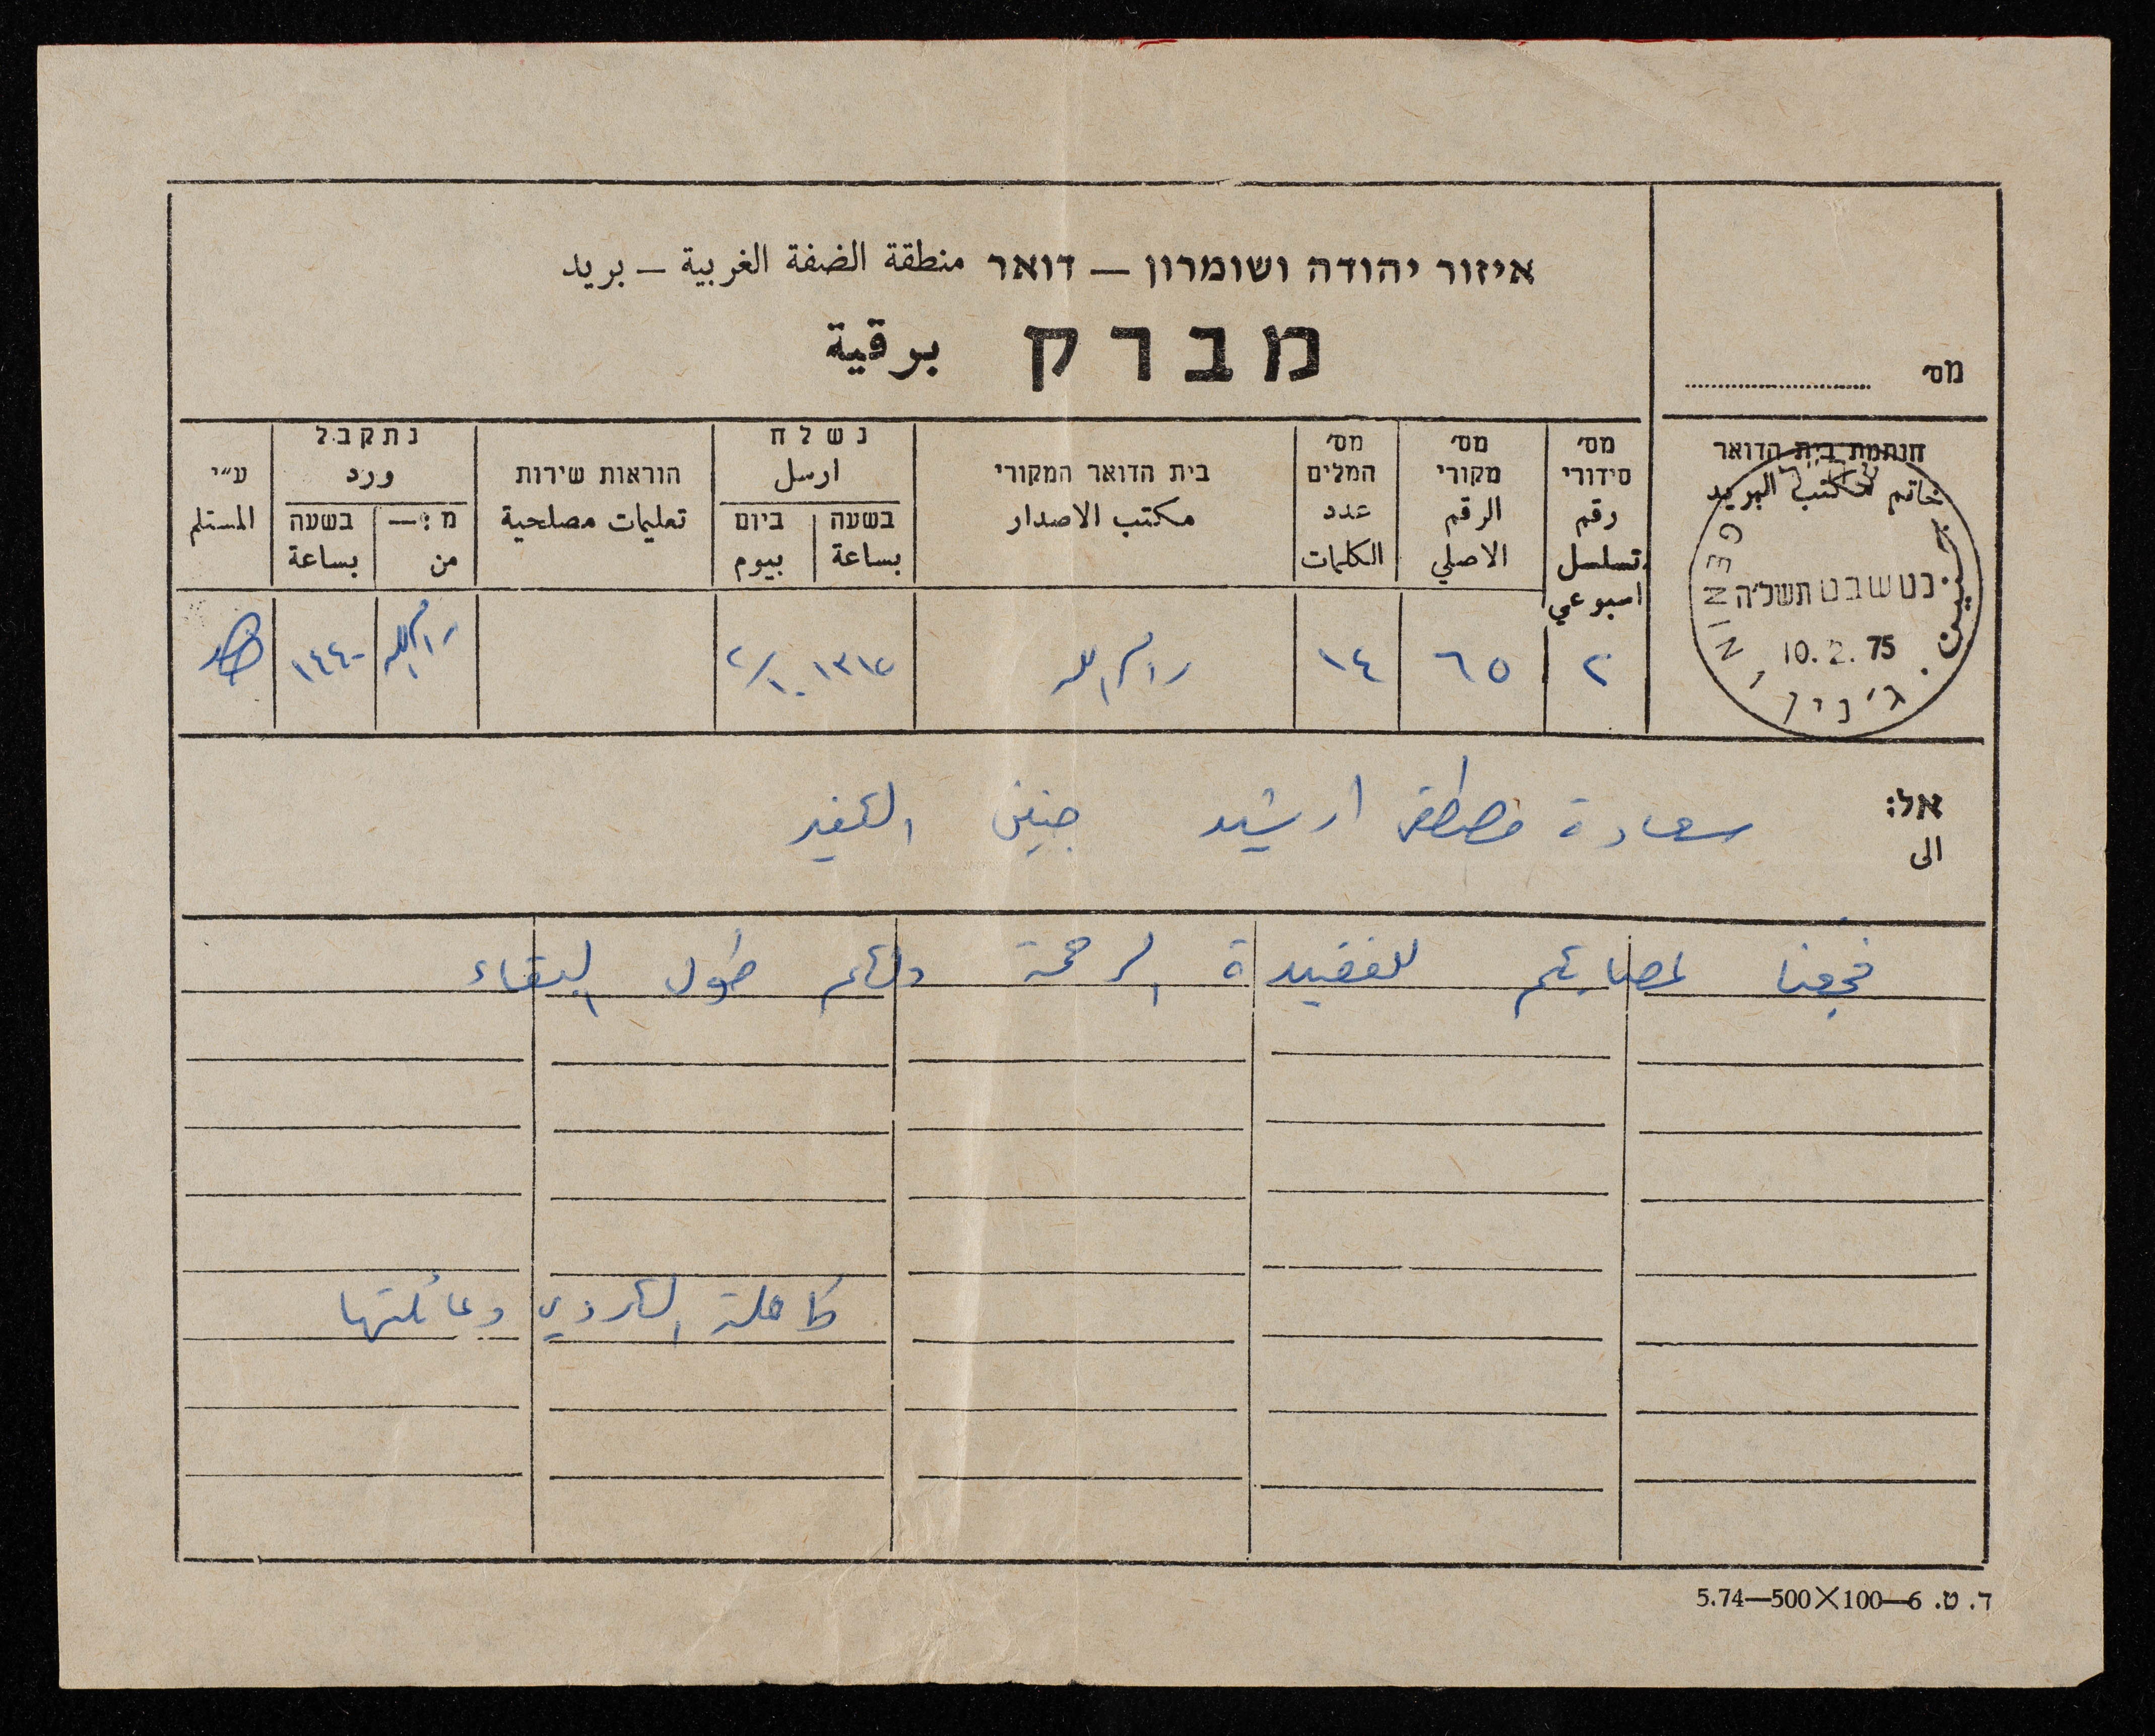 איזור יהודה ושומרון – דואר منطقة الضفة الغربية – بريد
מברק برقية
מס׳
חותמת בית הדואר
خاتم مكتب البريد
جنين
GENIN
כט שבט תשל״ה
10.2.75
ג׳נין
מס׳ סידורי رقم تسلسل اسبوعي
מס׳ מקורי الرقم الاصلي
מס׳ המלים عدد الكلمات
בית הדואר המקורי مكتب الاصدار
נשלח ارسل
בשעה بساعة
ביום بيوم
הוראות שירות تعليمات مصلحية
נתקבל ورد
מ:— من
בשעה بساعة
ע״י المستلم
٢ ٦٥ ١٤ رام الله ١٣١٥ ١٠/٢ رام الله ١٤٤٠
אל:
الى
سعادة مصطفى ارشيد جنين الكفير
فجعنا لمصابكم للفقيدة الرحمة ولكم طول البقاء
كاملة الكردي وعائلتها
ד. ט. 6—100×500—5.74